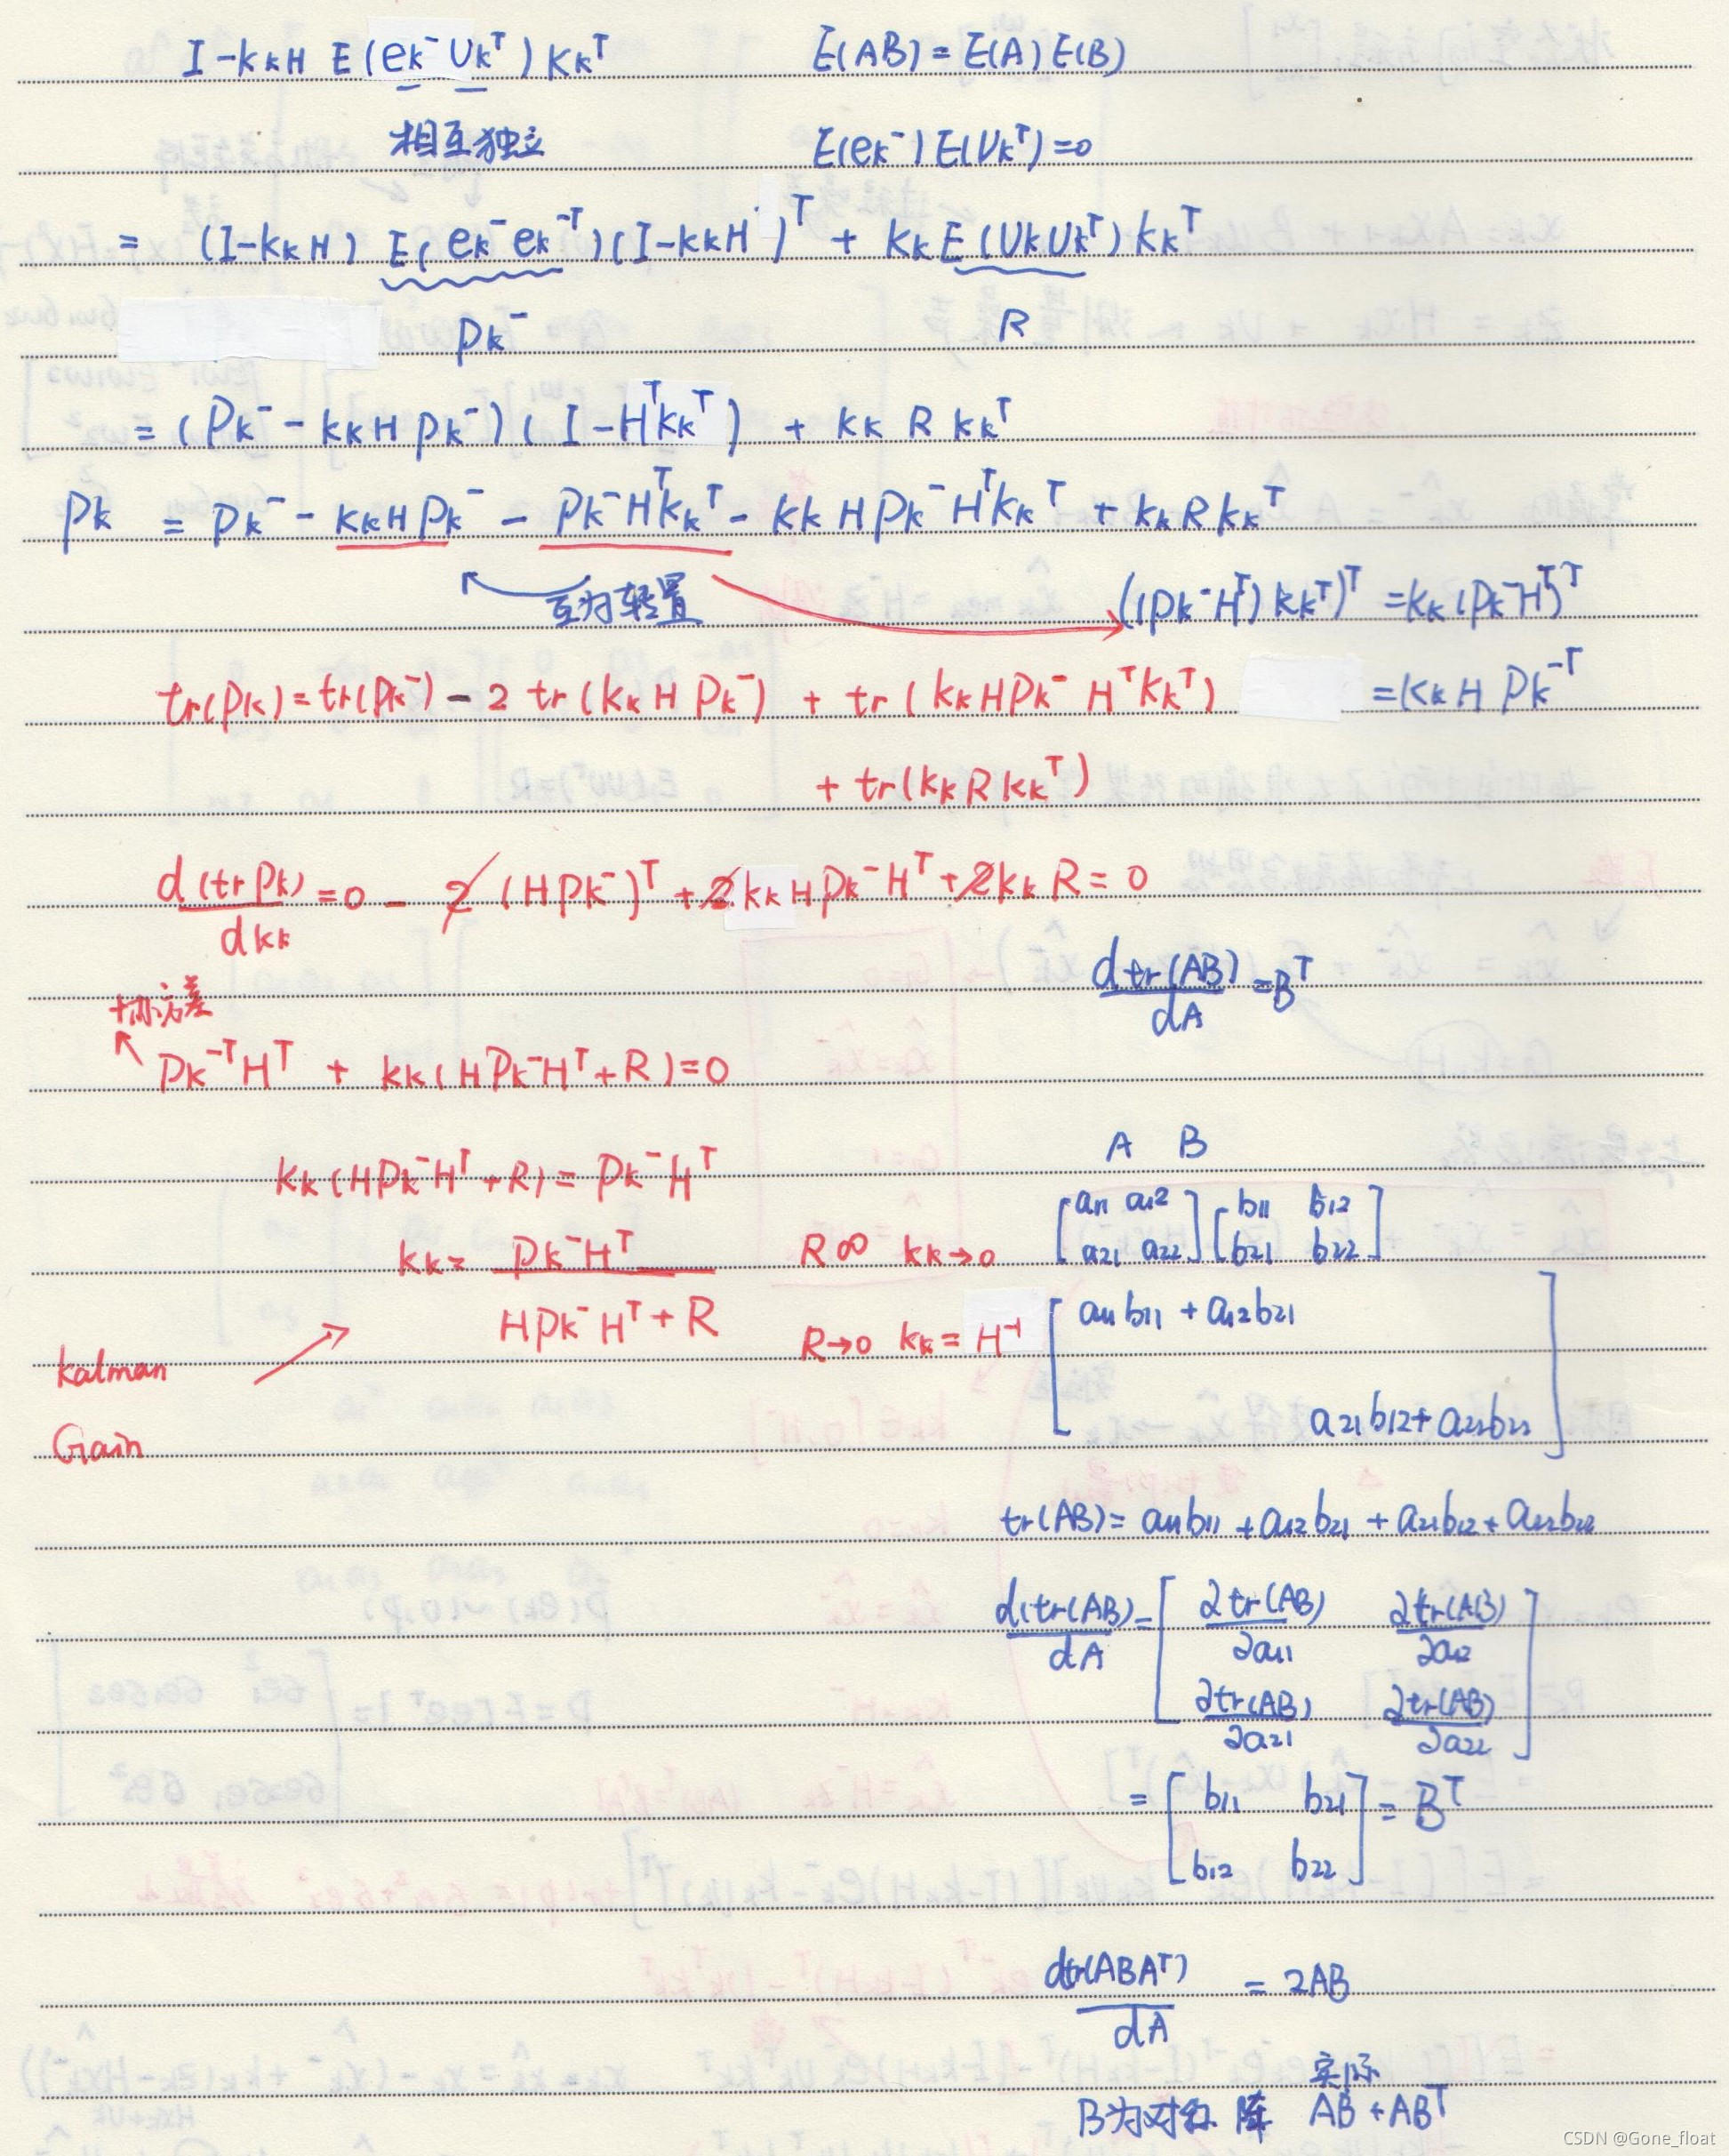 I-KkH E(ek⁻ Vkᵀ) Kkᵀ E(AB)=E(A)E(B)
相互独立 E(ek⁻)E(Vkᵀ)=0
= (I-KkH) E(ek⁻ek⁻ᵀ)(I-KkH)ᵀ + Kk E(VkVkᵀ) Kkᵀ
Pk⁻ R
= (Pk⁻ - KkHPk⁻)(I-HᵀKkᵀ) + Kk R Kkᵀ
Pk = Pk⁻ - KkHPk⁻ - Pk⁻HᵀKkᵀ - KkHPk⁻HᵀKkᵀ + KkRKkᵀ
互为转置 ((Pk⁻Hᵀ)Kkᵀ)ᵀ = Kk(Pk⁻Hᵀ)ᵀ
tr(Pk)=tr(Pk⁻) - 2 tr(KkHPk⁻) + tr(KkHPk⁻HᵀKkᵀ) =KkHPk⁻ᵀ
+ tr(KkRKkᵀ)
d(trPk)/dKk = 0 - 2(HPk⁻)ᵀ + 2KkHPk⁻Hᵀ + 2KkR = 0
d tr(AB)/dA = Bᵀ
协方差
Pk⁻ᵀHᵀ + Kk(HPk⁻Hᵀ+R)=0
Kk(HPk⁻Hᵀ+R)=Pk⁻Hᵀ
Kk= Pk⁻Hᵀ/HPk⁻Hᵀ+R
Kalman
Gain
R∞ Kk→0
R→0 Kk=H⁻¹
A B
[a11 a12 [b11 b12
a21 a22] b21 b22]
[a11b11+a12b21
a21b12+a22b22]
tr(AB)=a11b11+a12b21+a21b12+a22b22
d(tr(AB)/dA = [∂tr(AB)/∂a11 ∂tr(AB)/∂a12
∂tr(AB)/∂a21 ∂tr(AB)/∂a22]
= [b11 b21
b12 b22] = Bᵀ
dtr(ABAᵀ)/dA = 2AB
实际
B为对称阵 AB+ABᵀ
CSDN @Gone_float